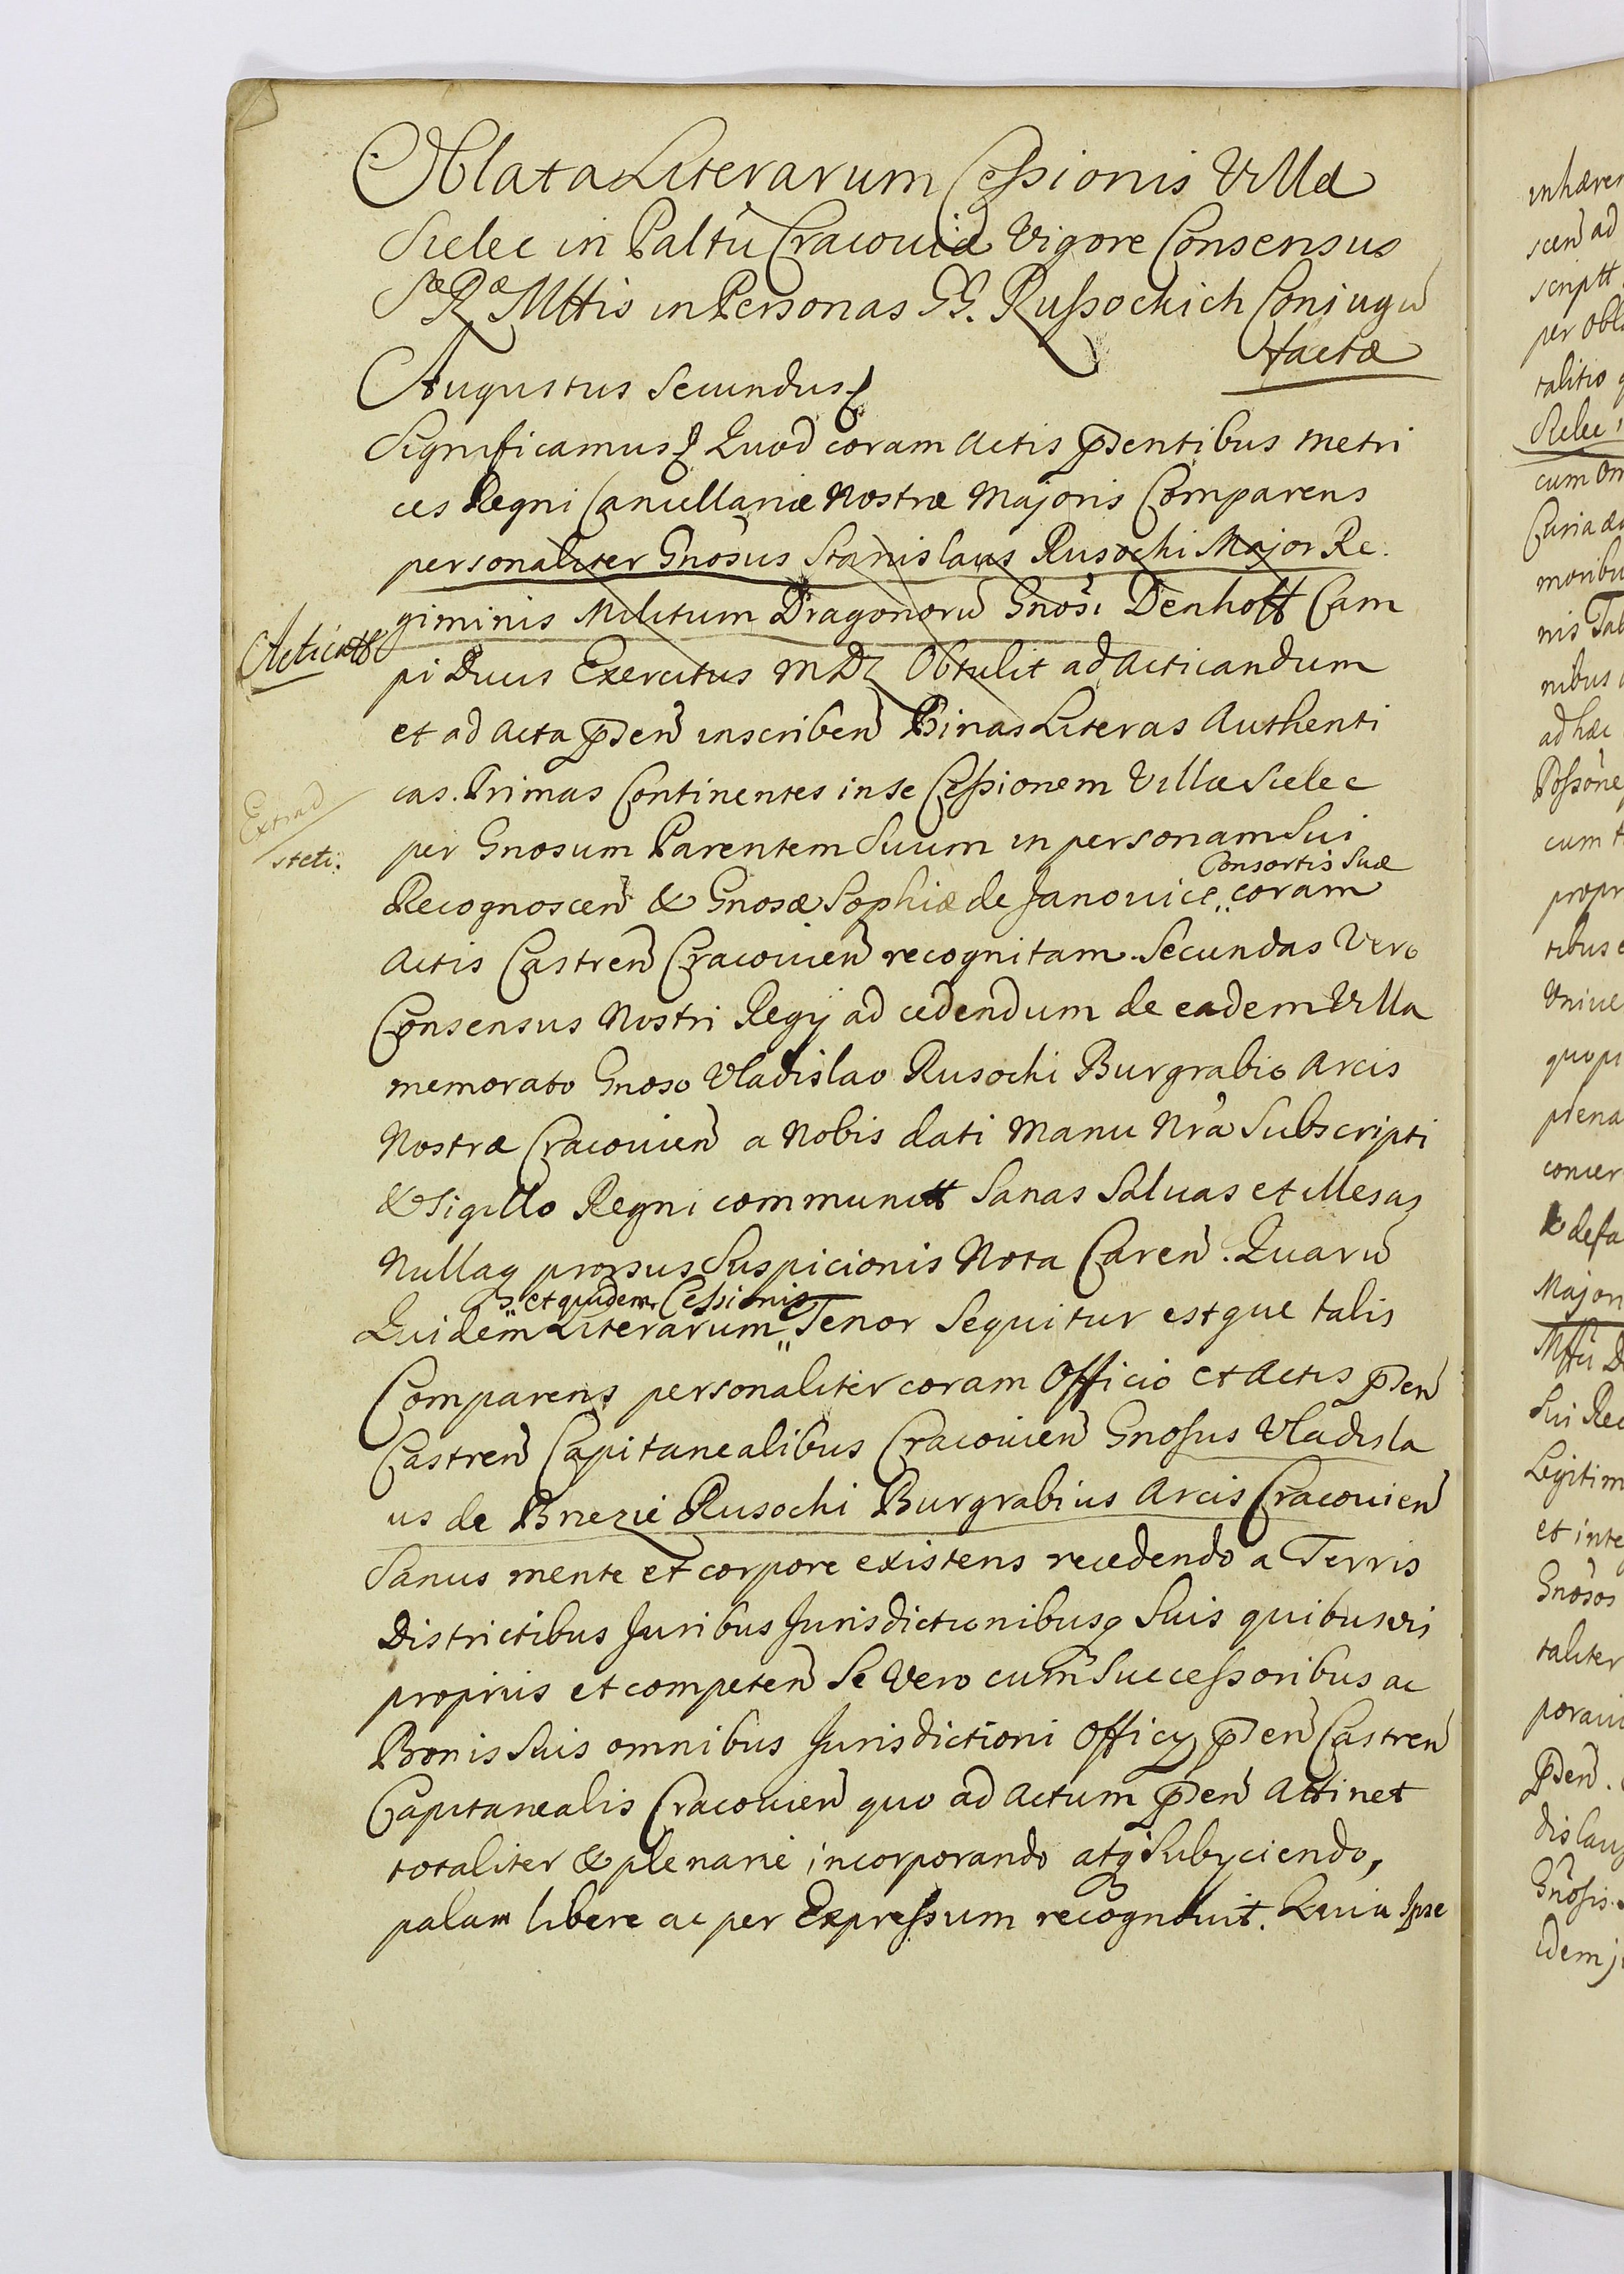 Oblata Literarum Cessionis Villæ
Sielec in Paltũ Cracouiæ Vigore Consensus
Sæ Ræ Mttis in Personas GG. Russochich Coniugũ
factæ
Augustus Secundus
Significamus Quod coram Actis p̃sentibus Metri
ces Regni Cancellariæ Nostræ Majoris Comparens
personaliter Gnosus Stanislaus Rusochi Major Re.
giminis Militum Dragonorũ Gnosi Denhoff Cam
Acticatt
pi Ducis Exercitus MDL Obtulit ad Acticandum
et ad Acta p̃sen̄ inscriben̄ Binas Literas Authenti
Extrad
cas. Primas Continentes in se Cessionem Villæ Sielec
steti:
per Gnosum Parentem Suum in personam Sui
Consortis Suæ
Recognoscen̄ & Gnosæ Sophiæ de Janouice,, coram
Actis Castren̄ Cracouien̄ recognitam. Secundas Vero
Consensus Nostri Regij ad cedendum de eadem Villa
memorato Gnoso Vladislao Rusochi Burgrabio Arcis
Nostræ Cracouien̄ a Nobis dati Manu Nrã Subscripti
& Sigillo Regni communitt Sanas Saluas et illesas
Nullaq prorsus Suspicionis Nota Caren̄. Quarũ
,, et quidem Cessionis
Quidem Literarum,, Tenor Sequitur estque talis
Comparens personaliter coram Officio et Actis p̃sen̄
Castren̄ Capitanealibus Cracouien̄ Gnosus Vladisla
us de Brezie Rusochi Burgrabius Arcis Cracouien̄
Sanus mente et corpore existens recedendo a Terris
Districtibus Juribus Jurisdictionibusq Suis quibusvis
propriis et competen̄ Se Vero cum Successoribus ac
Bonis Suis omnibus Jurisdictioni Officij p̃sen̄ Castren̄
Capitanealis Cracouien̄ quo ad Actum p̃sen̄ Attinet
totaliter & plenarie incorporando atq Subijciendo,
palam libere ac per Expressum recognouit. Quia Ipse